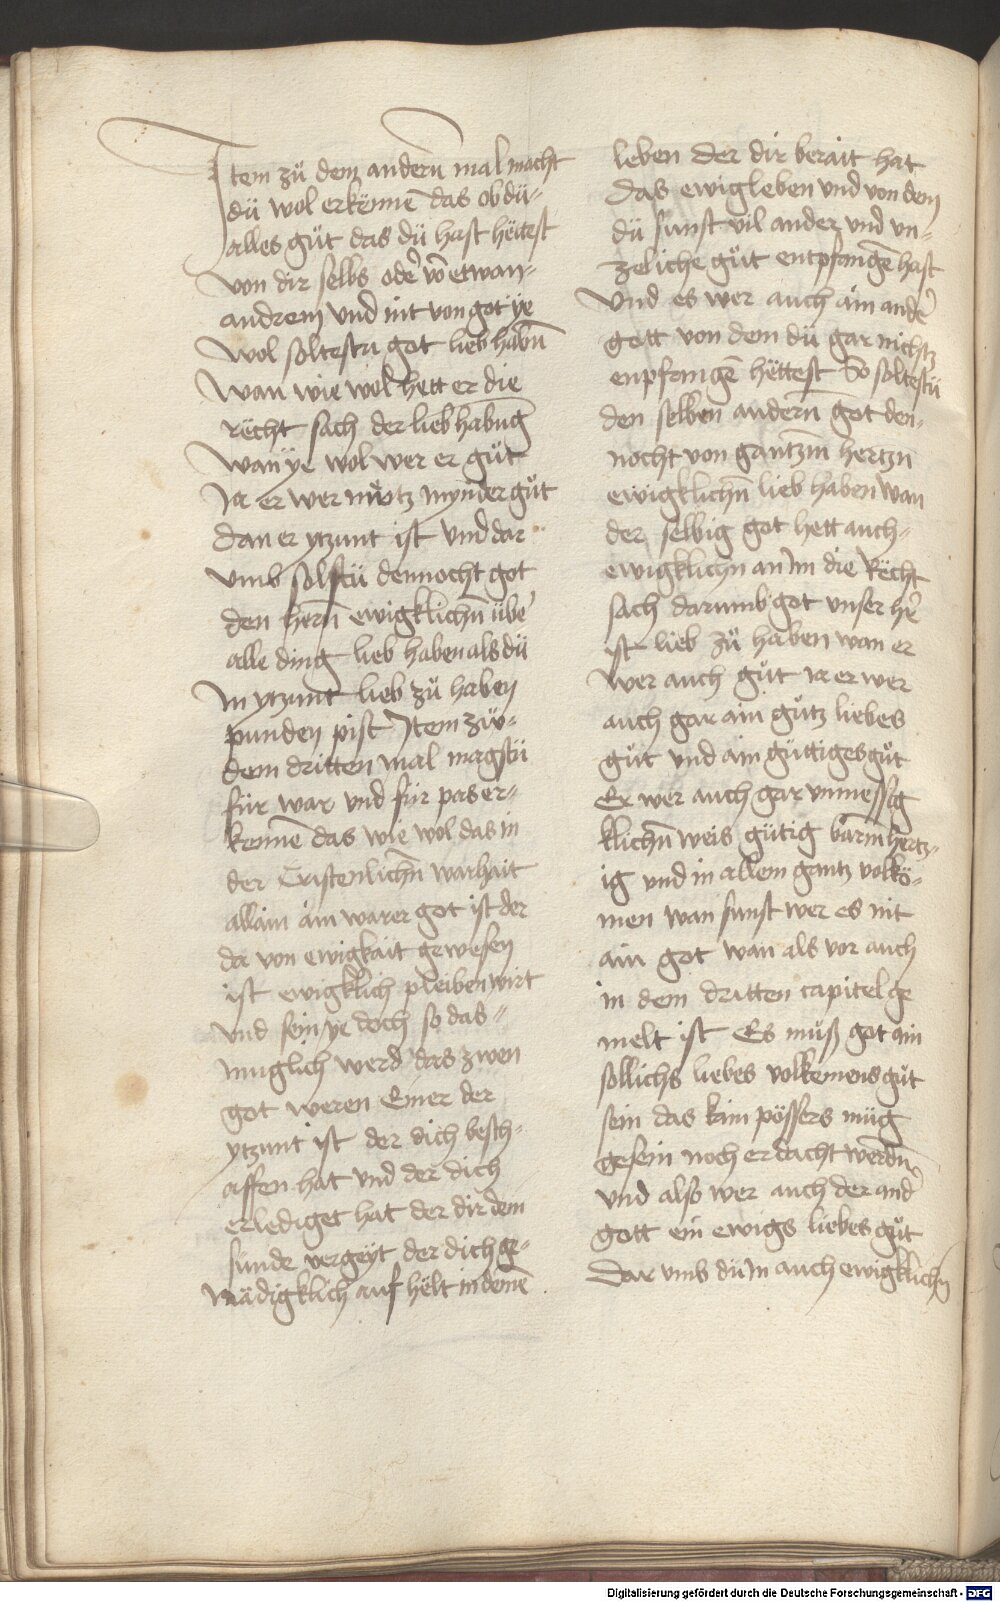 Item zů dem andern̄ mal macht
dü wol erkēnnē das ob dü-
alles gůt das dü hast hëttest
von dir selbs odē vō etwan-
andrem und nit von got ÿe
wol soltestu got lieb habn̄
Wan wie wol hett er die
rëcht sach der lieb habūg
Wan ÿe wol wer er gůt
Ja er wer nücz mynner gůt
dan er ytzunt ist und dar
umb solstü dennocht got
den hern̄ ewigklichn̄ übē
alle ding lieb haben als dü
In ytzunt lieb zů haben
punden pist Item zů-
dem dritten mal magstü
für war und für pas er-
kennē das wie wol das in
der Cristenlichn̄ warhait
allain ain warer got ist der
da von ewigkait gewesen
ist ewigklich pleiben wirt
und sein ÿe doch so das-
muglich werd das zwen
got weren Einer der
ytzunt ist der dich besch-
affen hat und der dich
erlediget hat der dir dein
sünde vergeÿt der dich ge-
nädigklich auf hëlt in denē
leben der dir berait hat
das ewig leben und von dem
dü sunst vil ander und un-
zeliche gůt entpfangē hast
Und es wer auch ain andē
gott von dem dü gar nichtz
enpfangē hëttest So soltestü
den selben andern̄ got den-
nocht von gantzm̄ hertzn̄
ewigklichn̄ lieb haben wan
der selbig got hett auch-
ewigklichn̄ an im die Rëcht
sach darumb got unser hē
ist lieb zů haben wan er
wer auch gůt ia er wer
auch gar ain gůtz liebes
gůt und ain güttiges gůt
Er wer auch gar unmessig
klichn̄ weis gütig barmhertz-
ig und in allem gantz volkö-
men wan sunst wer es nit
ain got wan als vor auch
in dem dritten capitel ge
melt ist Es můß got ain
sollichs liebes volkemens gůt
sein das kain pössers müg
gesein noch erdacht werdn̄
und also wer auch der andē
gott ein ewigs liebes gůt
Dar umb dü in auch ewigklichn̄
Digitalisierung gefördert durch die Deutsche Forschungsgemeinschaft - DFG